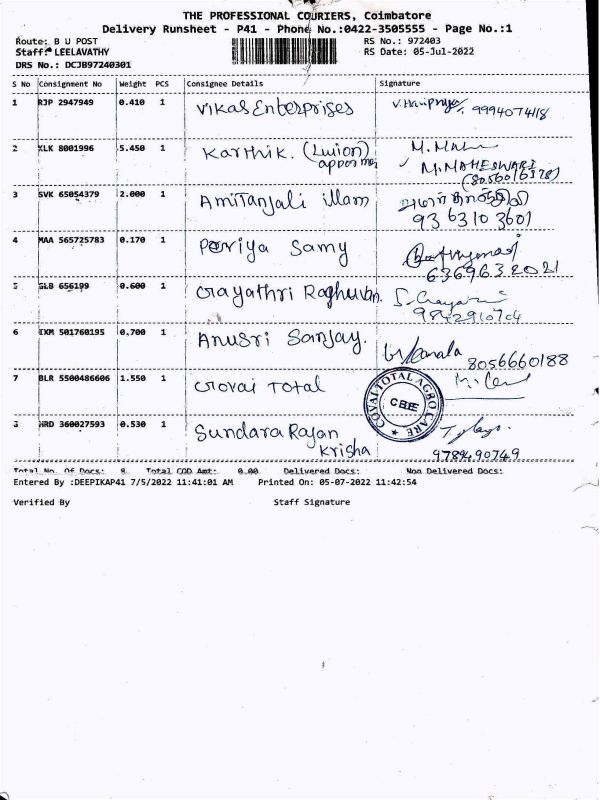 THE PROFESSIONAL COURIERS, Coimbatore
Delivery Runsheet - P41 - Phone No.:0422-3505555 - Page No.:1
Route: B U POST RS No.: 972403
Staff: LEELAVATHY RS Date: 05-Jul-2022
DRS No.: DCJB97240301
S No Consignment No Weight PCS Consignee Details Signature
1 RJP 2947949 0.410 1 Vikas Enterprises 9994074118
2 KLK 8001996 5.450 1 Karthik. (Luion) M.
M.MAHESWARI
3 SVK 65054379 2.000 1 Amitanjali illam
9363103601
4 MAA 565725783 0.170 1 Periya Samy
6369632021
5 GLB 656199 0.600 1 Gayathri Raghuvan.
6 IXM 501760195 0.700 1 Anusri Sanjay.
8056660188
7 BLR 5500486606 1.550 1 Covai Total
COVAI TOTAL AGRO CARE
CBE
8 HRD 360027593 0.530 1 Sundara Rajan
Krisha
9789490749
Total No. Of Docs: 8 Total COD Amt: 0.00 Delivered Docs: Non Delivered Docs:
Entered By :DEEPIKAP41 7/5/2022 11:41:01 AM Printed On: 05-07-2022 11:42:54
Verified By Staff Signature